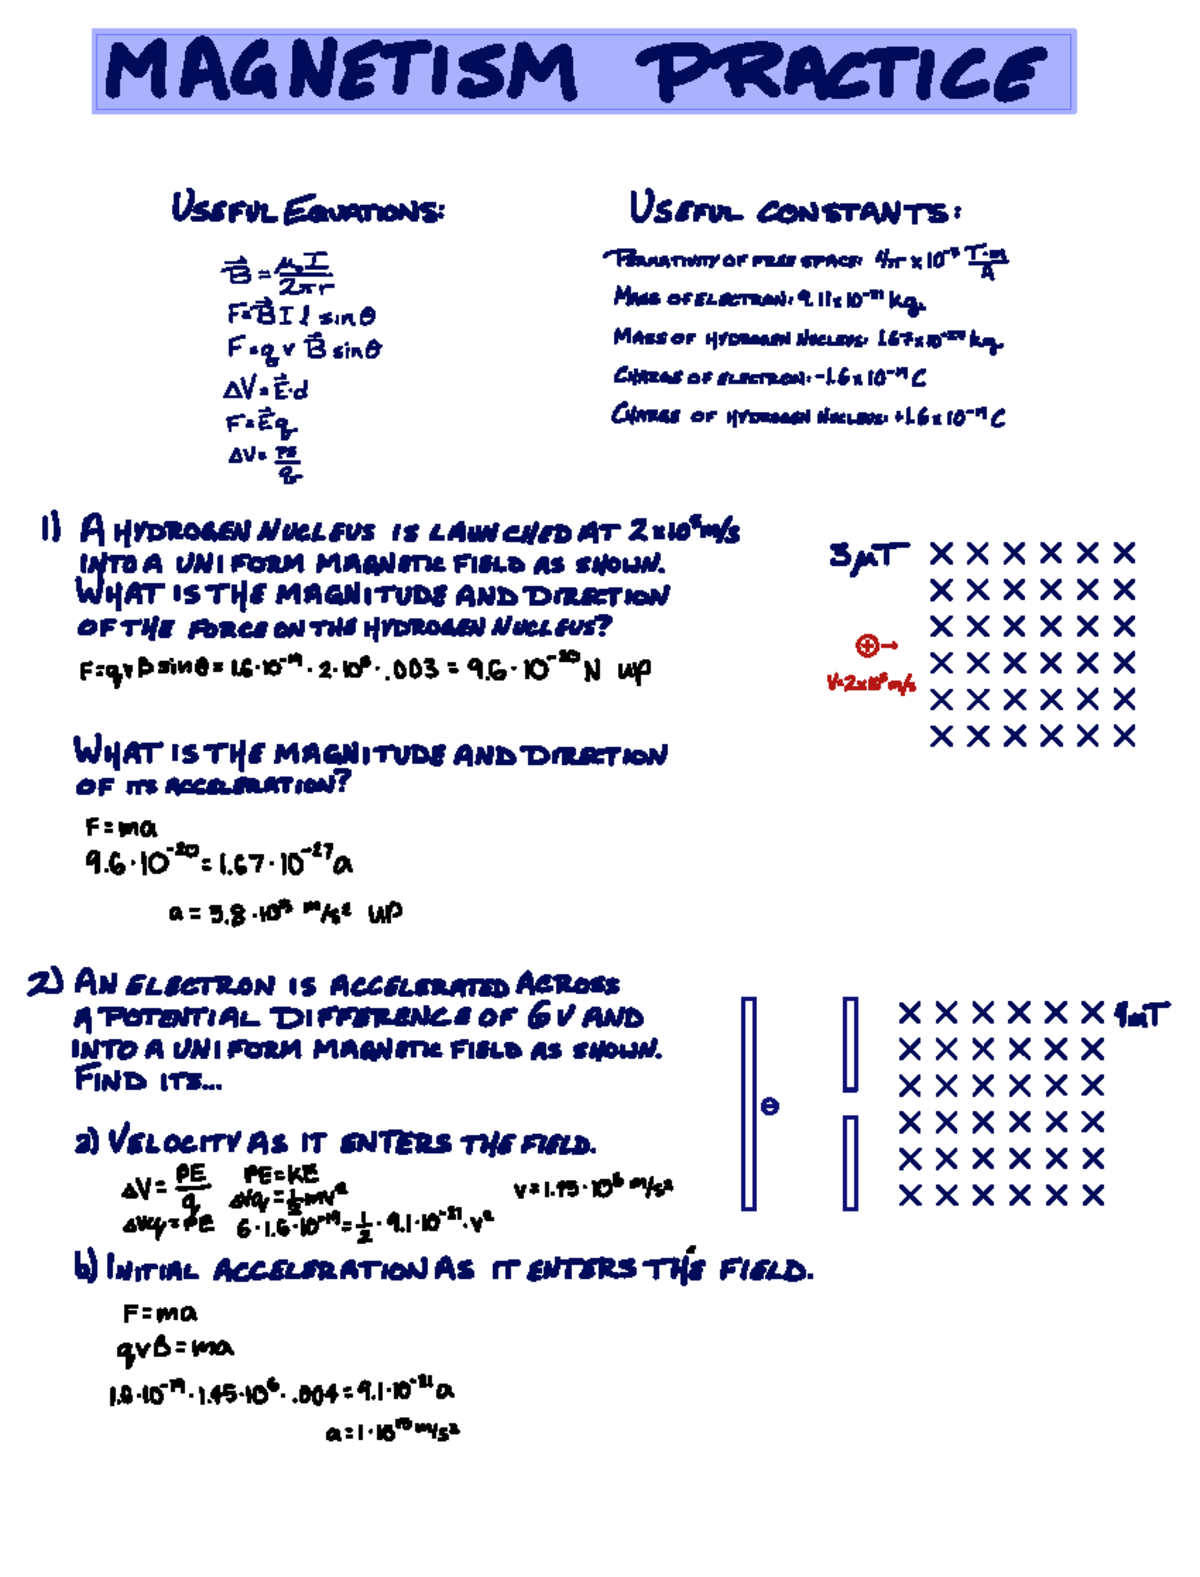 MAGNETISM PRACTICE
USEFUL EQUATIONS:
B⃗ = μ₀I / 2πr
F = B⃗ I l sin θ
F = q v B⃗ sin θ
ΔV = E⃗·d
F = E⃗q
ΔV = PE / q
USEFUL CONSTANTS:
OF FREE SPACE: 4π x 10⁻⁷ T·m / A
MASS OF ELECTRON: 9.11 x 10⁻³¹ kg
MASS OF HYDROGEN NUCLEUS: 1.67 x 10⁻²⁷ kg
CHARGE OF ELECTRON: -1.6 x 10⁻¹⁹ C
CHARGE OF HYDROGEN NUCLEUS: +1.6 x 10⁻¹⁹ C
1) A HYDROGEN NUCLEUS IS LAUNCHED AT m/s
INTO A UNIFORM MAGNETIC FIELD AS SHOWN.
WHAT IS THE MAGNITUDE AND DIRECTION
OF THE FORCE ON THE HYDROGEN NUCLEUS?
F = qvB sin θ = 1.6·10⁻¹⁹ · .003 = 9.6·10⁻²⁰ N UP
3 T
WHAT IS THE MAGNITUDE AND DIRECTION
OF ITS ACCELERATION?
F = ma
9.6·10⁻²⁰ = 1.67·10⁻²⁷ a
a = m/s² UP
2) AN ELECTRON IS ACCELERATED ACROSS
A POTENTIAL DIFFERENCE OF 6V AND
INTO A UNIFORM MAGNETIC FIELD AS SHOWN.
FIND ITS...
a) VELOCITY AS IT ENTERS THE FIELD.
ΔV = PE / q PE = KE
ΔVq = ½mv²
ΔVq = PE 6·1.6·10⁻¹⁹ = ½·9.1·10⁻³¹·v²
m/s²
b) INITIAL ACCELERATION AS IT ENTERS THE FIELD.
F = ma
qvB = ma
1.45·10⁶ · .004 = 9.1·10⁻³¹ a
m/s²